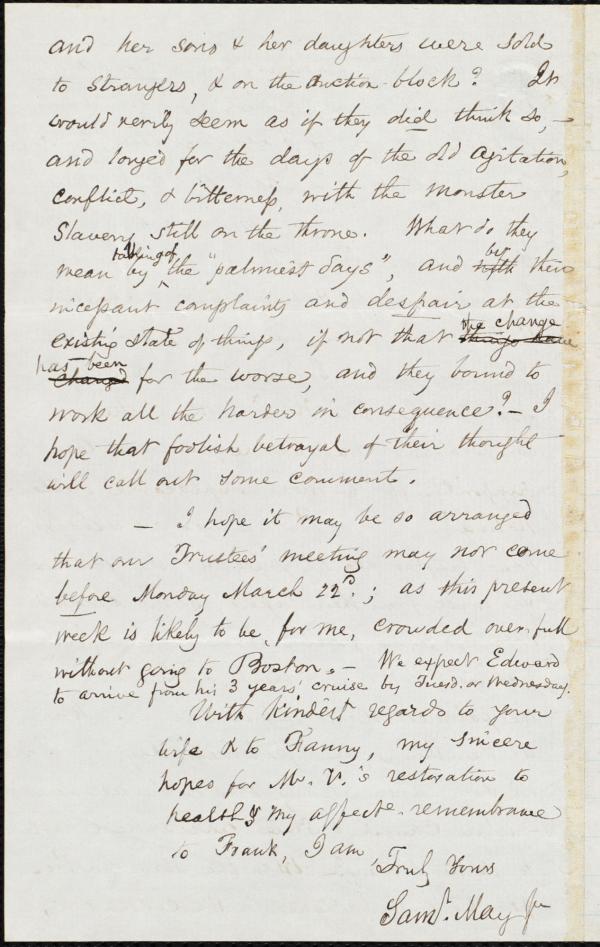 and her sons & her daughters were sold
to strangers, & on the auction-block? It
would verily seem as if they did think so, –
and longed for the days of the old agitation,
conflict, & bitterness, with the monster
Slavery still on the throne. What do they
talking of
mean by the "palmiest days", and by their
incessant complaints and despair at the
the change
existing state of things, if not that things have
has been
changed for the worse, and they bound to
work all the harder in consequence? – I
hope that foolish betrayal of their thought
will call out some comment.
– I hope it may be so arranged
that our Trustees' meeting may not come
before Monday March 22d.; as this present
week is likely to be, for me, crowded over-full
without going to Boston. – We expect Edward
to arrive from his 3 years' cruise by Tuesd. or Wednesday.
With kindest regards to your
wife & to Fanny, my sincere
hopes for Mr. V.'s restoration to
health & my affecte. remembrance
to Frank, I am
Truly Yours
Saml. May Jr